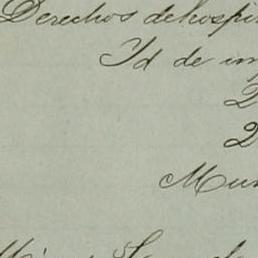 Derechos de hospi
Id de im
2
2
Mun